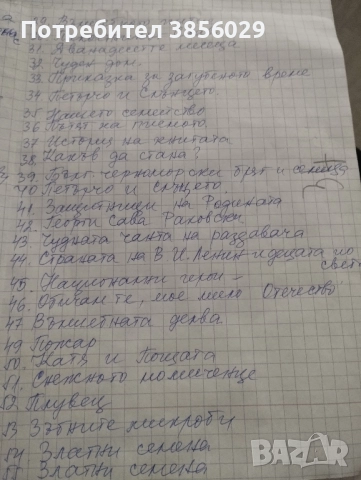 Потребител 3856029
31. Дванадесетте месеца
32. Чуден дом.
33. Приказка за загубеното време
34. Петърчо и Слънцето.
35. Нашето семейство
36. Пътят на писмото.
37. История на книгата
38. Какъв да стана?
39. Бълг. черноморски бряг и
40. Петърчо и слънцето.
41. Защитници на Родината
42. Георги Сава Раковски
43. Чудната чанта на раздавача
44. Страната на В. И. Ленин и децата по
свет
45. Национални герои -
46. Обичам те, мое мило Отечество
47. Вълшебната дърва.
49 Пожар
50. Катя и Пощата
51. Снежното момиченце
52 Плувец
53 Зъбните микроби
54 Златни семена
55 Златни семена
BAZAR